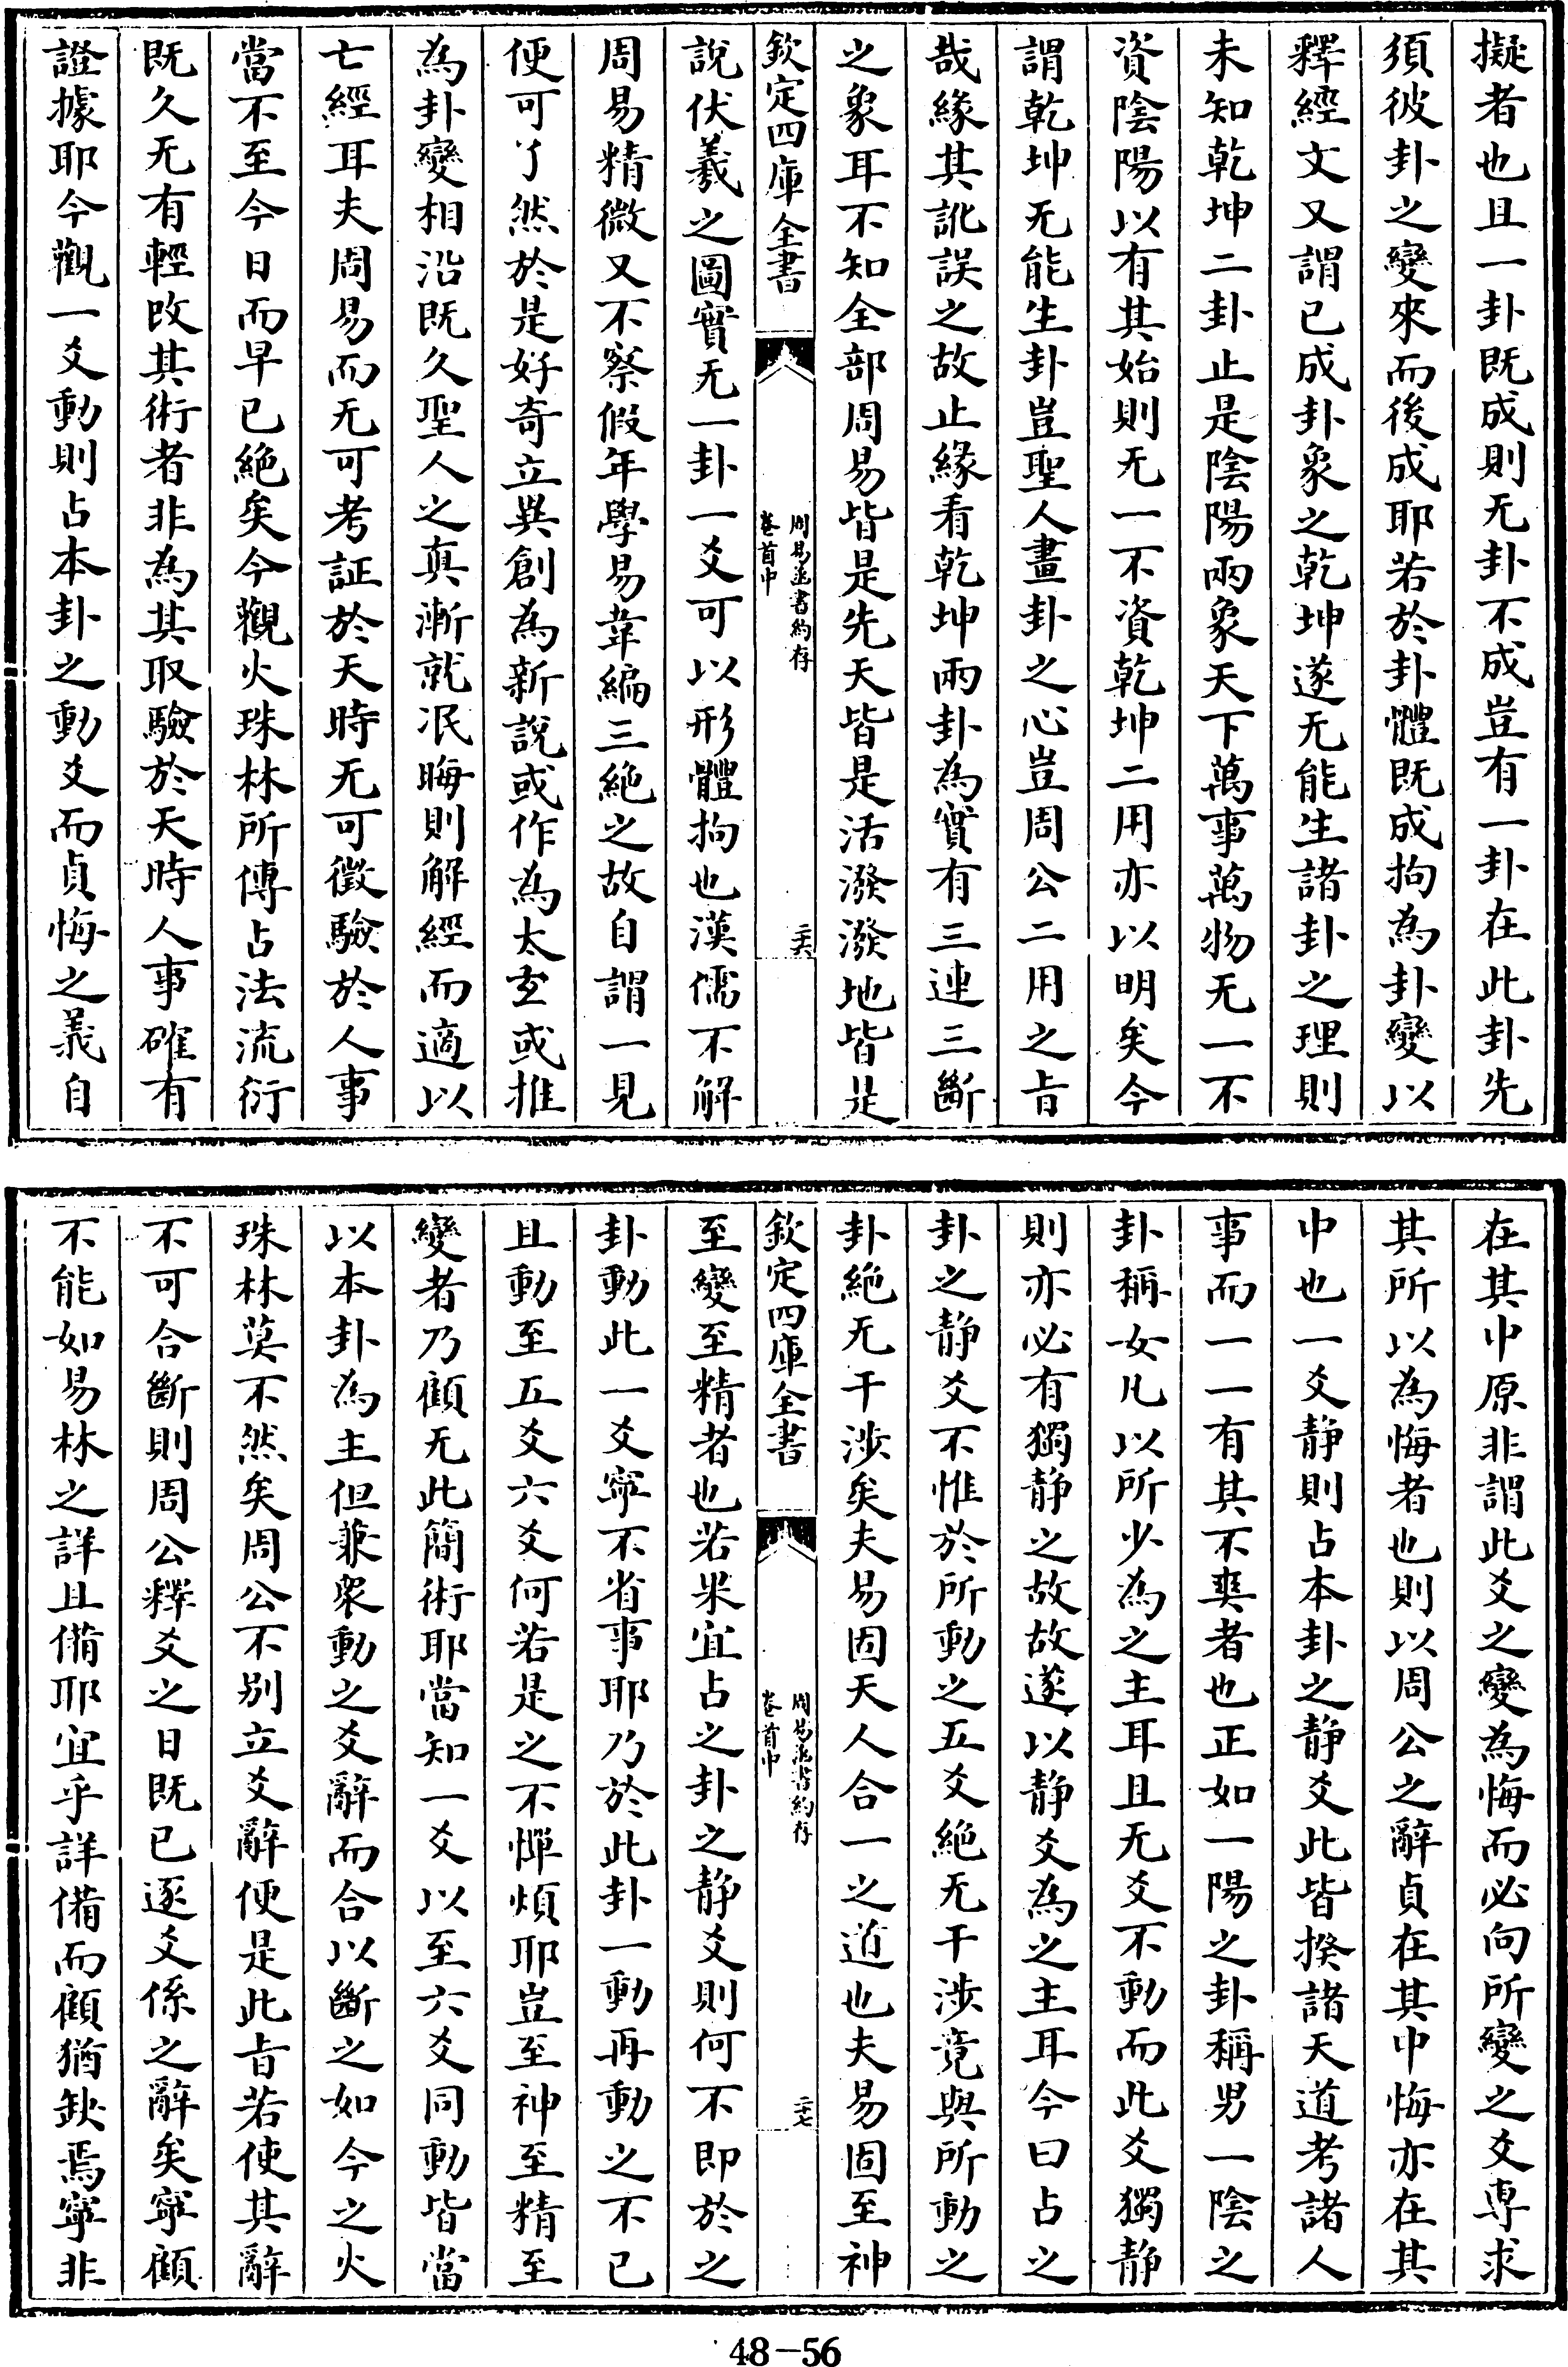 擬者也且一卦既成則无卦不成豈有一卦在此卦先
須彼卦之變來而後成耶若於卦體既成拘為卦變以
釋經文又謂已成卦象之乾坤遂无能生諸卦之理則
未知乾坤二卦止是陰陽兩象天下萬事萬物无一不
資陰陽以有其始則无一不資乾坤二用亦以明矣今
謂乾坤无能生卦豈聖人畫卦之心豈周公二用之㫖
哉緣其訛誤之故止緣看乾坤兩卦為實有三連三斷
之象耳不知全部周易皆是先天皆是活潑潑地皆是
欽定四庫全書
周易函書約存
卷首中
二六
說伏羲之圖實无一卦一爻可以形體拘也漢儒不解
周易精微又不察假年學易韋編三絶之故自謂一見
便可了然於是好奇立異創為新說或作為太玄或推
為卦變相沿既久聖人之真漸就泯晦則解經而適以
亡經耳夫周易而无可考証於天時无可徵驗於人事
當不至今日而早已絶矣今觀火珠林所傳占法流衍
既久无有輕改其術者非為其取驗於天時人事確有
證據耶今觀一爻動則占本卦之動爻而貞悔之義自
在其中原非謂此爻之變為悔而必向所變之爻専求
其所以為悔者也則以周公之辭貞在其中悔亦在其
中也一爻静則占本卦之静爻此皆揆諸天道考諸人
事而一一有其不爽者也正如一陽之卦稱男一陰之
卦稱女凡以所少為之主耳且无爻不動而此爻獨静
則亦必有獨静之故故遂以静爻為之主耳今曰占之
卦之静爻不惟於所動之五爻絶无干涉竟與所動之
卦絶无干涉矣夫易固天人合一之道也夫易固至神
欽定四庫全書
周易函書約存
卷首中
二七
至變至精者也若果宜占之卦之静爻則何不即於之
卦動此一爻寧不省事耶乃於此卦一動再動之不已
且動至五爻六爻何若是之不憚煩耶豈至神至精至
變者乃顧无此簡術耶當知一爻以至六爻同動皆當
以本卦為主但兼衆動之爻辭而合以斷之如今之火
珠林莫不然矣周公不別立爻辭便是此㫖若使其辭
不可合斷則周公釋爻之日既已逐爻係之辭矣寧顧
不能如易林之詳且備耶宜乎詳備而顧猶缺焉寧非
48-56